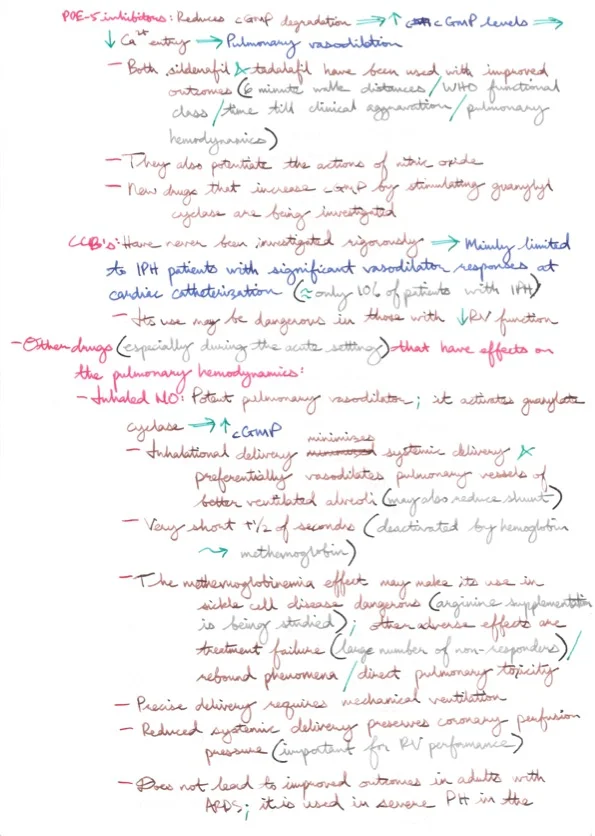 PDE-5 inhibitors: Reduces cGMP degradation → ↑ cGMP levels →
↓ Ca²⁺ entry → Pulmonary vasodilation
- Both sildenafil & tadalafil have been used with improved
outcomes (6 minute walk distances / WHO functional
class / time till clinical aggravation / pulmonary
hemodynamics)
- They also potentiate the actions of nitric oxide
- New drugs that increase cGMP by stimulating guanylyl
cyclase are being investigated
CCB's: Have never been investigated rigorously → Mainly limited
to IPH patients with significant vasodilator responses at
cardiac catheterization (≈ only 10% of patients with IPH)
- Its use may be dangerous in those with ↓RV function
- Other drugs (especially during the acute setting) that have effects on
the pulmonary hemodynamics:
- Inhaled NO: Potent pulmonary vasodilator; it activates guanylate
cyclase → ↑ cGMP
- Inhalational delivery minimizes systemic delivery &
preferentially vasodilates pulmonary vessels of
better ventilated alveoli (may also reduce shunt)
- Very short t1/2 of seconds (deactivated by hemoglobin
⇝ methemoglobin)
- The methemoglobinemia effect may make its use in
sickle cell disease dangerous (arginine supplementation
is being studied); other adverse effects are
treatment failure (large number of non-responders) /
rebound phenomena / direct pulmonary toxicity
- Precise delivery requires mechanical ventilation
- Reduced systemic delivery preserves coronary perfusion
pressure (important for RV performance)
- Does not lead to improved outcomes in adults with
ARDS; it is used in severe PH in the